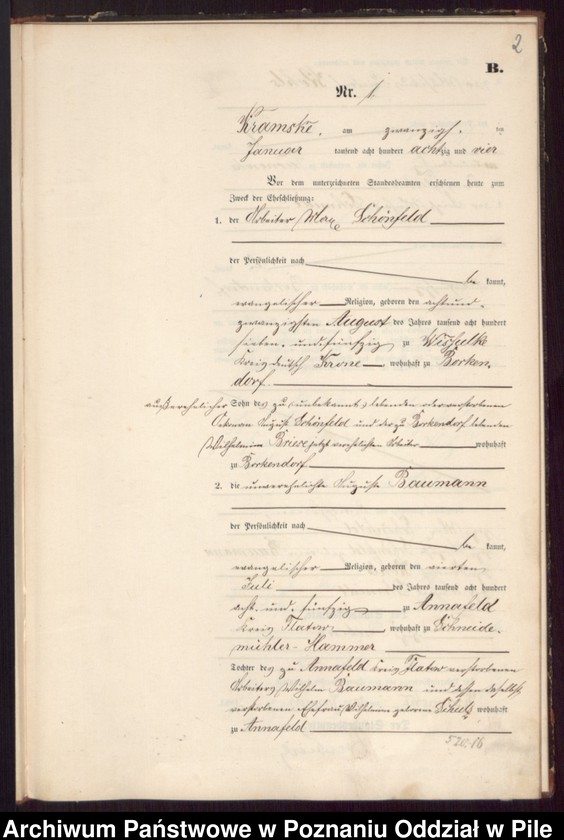 2
B.
Nr. 1
Kramske, am zwanzigst. ten
Januar tausend acht hundert achtzig und vier
Vor dem unterzeichneten Standesbeamten erschienen heute zum
Zweck der Eheschließung:
1. der Arbeiter Max Schönfeld
der Persönlichkeit nach
be kannt,
evangelischer Religion, geboren den achtund-
zwanzigsten August des Jahres tausend acht hundert
sieben und fünfzig zu Wissulke
Kreis deutsch Krone wohnhaft zu Borken-
dorf.
außerehelicher Sohn des zu (unbekannt) lebenden oder verstorbenen
August Schönfeld und der zu Borkendorf lebenden
Wilhelmine Briese jetzt verehelichten Arbeiter wohnhaft
zu Borkendorf
2. die unverehelichte Auguste Baumann
der Persönlichkeit nach
be kannt,
evangelischer Religion, geboren den vierten
Juli des Jahres tausend acht hundert
acht und fünfzig zu Annafeld
Kreis Flatow wohnhaft zu Schneide-
mühler-Hammer
Tochter des zu Annafeld Kreis Flatow verstorbenen
Arbeiters Wilhelm Baumann und dessen daselbst
verstorbenen Ehefrau Wilhelmine geborene Schulz wohnhaft
zu Annafeld
Archiwum Państwowe w Poznaniu Oddział w Pile